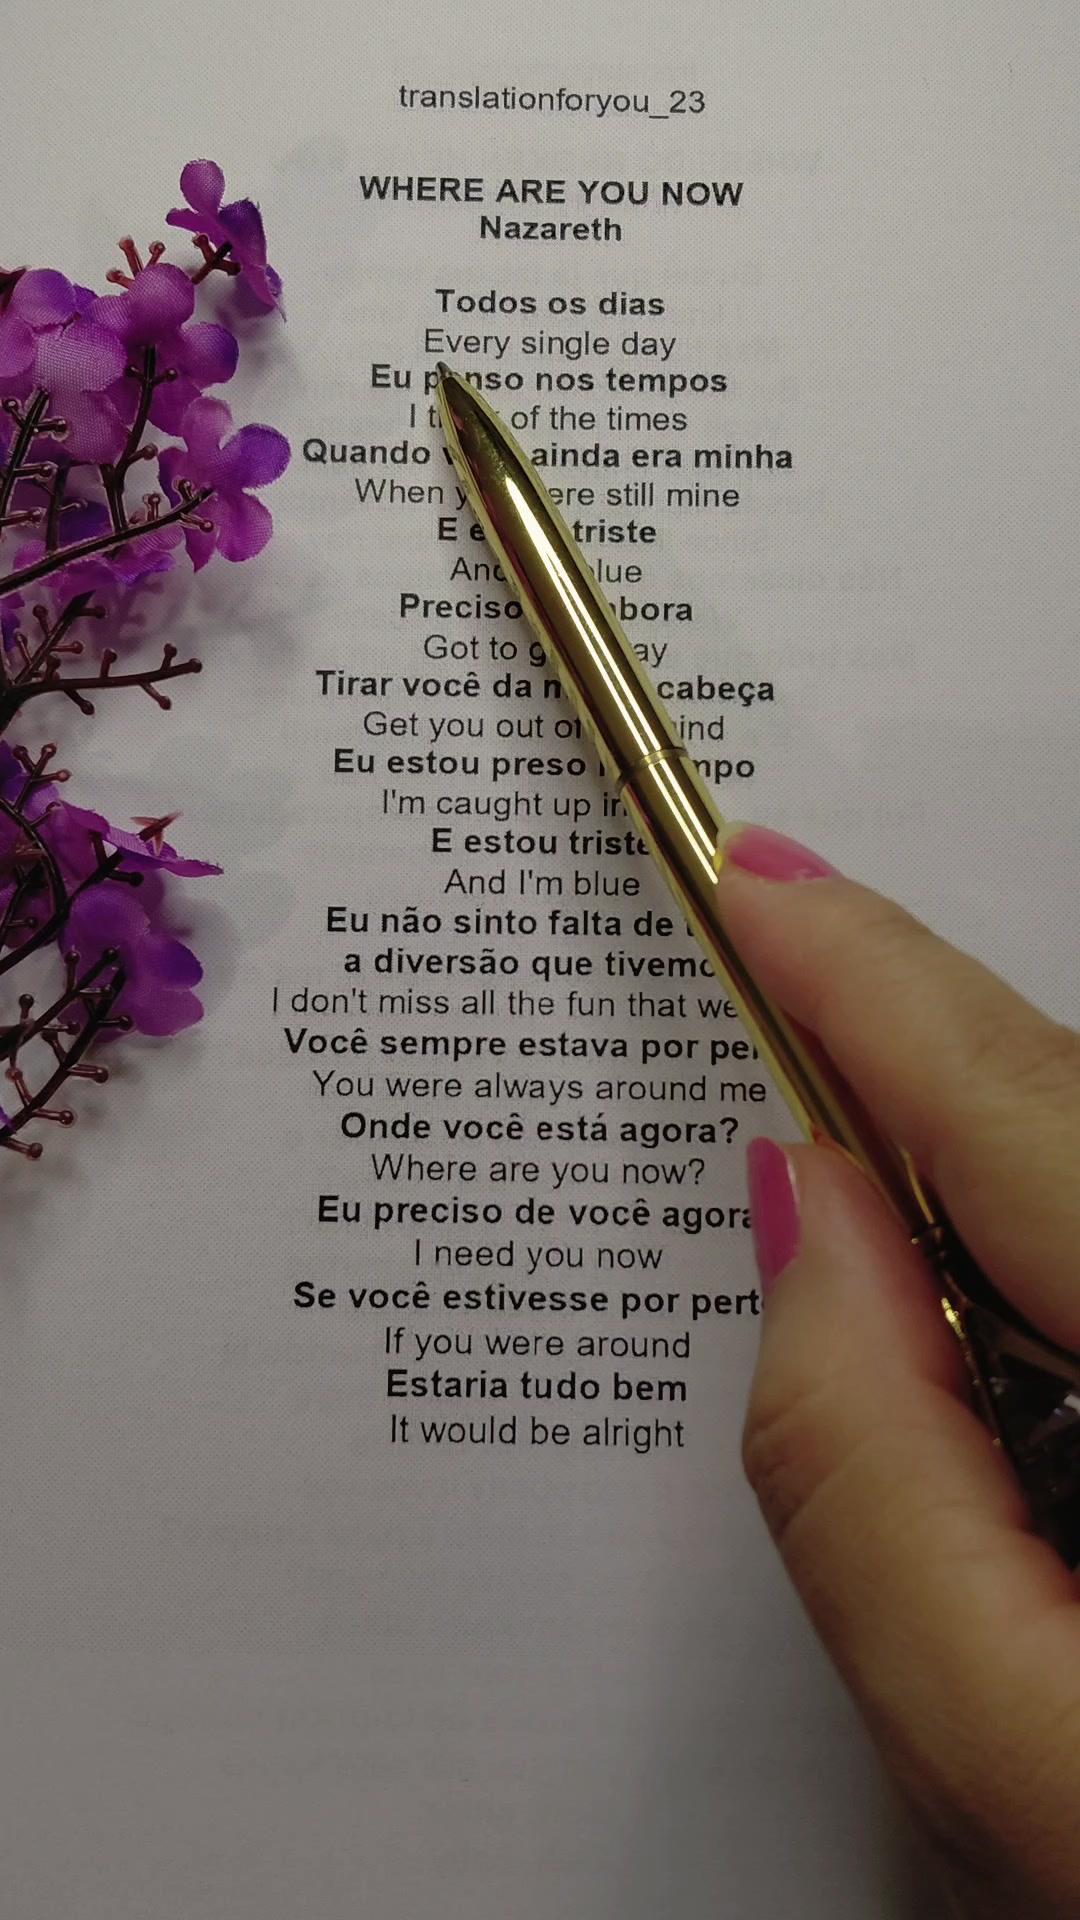 translationforyou_23
WHERE ARE YOU NOW
Nazareth
Todos os dias
Every single day
Eu penso nos tempos
I of the times
Quando ainda era minha
When still mine
E triste
And
Preciso
Got to
Tirar você da cabeça
Get you out
Eu estou preso
I'm caught up
E estou triste
And I'm blue
Eu não sinto falta de
a diversão que tivemos
I don't miss all the fun that we
Você sempre estava por
You were always around me
Onde você está agora?
Where are you now?
Eu preciso de você agora
I need you now
Se você estivesse por perto
If you were around
Estaria tudo bem
It would be alright